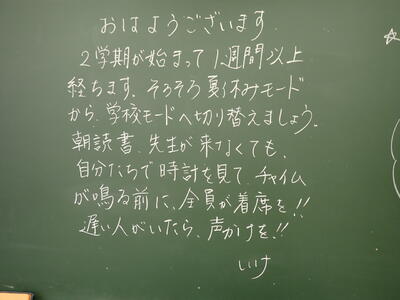 おはようございます
2学期が始まって1週間以上
経ちます。そろそろ夏休みモード
から、学校モードへ切り替えましょう。
朝読書、先生が来なくても、
自分たちで時計を見て、チャイム
が鳴る前に、全員が着席を!!
遅い人がいたら、声かけを!!
いけ